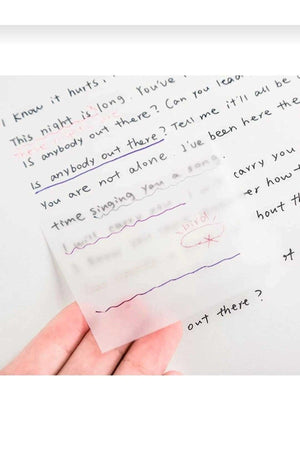 I know it hurts,
This night is long. You've
Is anybody out there? Can you lead
Is anybody out there? Tell me it'll all be
You are not alone. I've been here the
time singing you a song.
I will carry you carry you
er how
bird
hout th
out there?